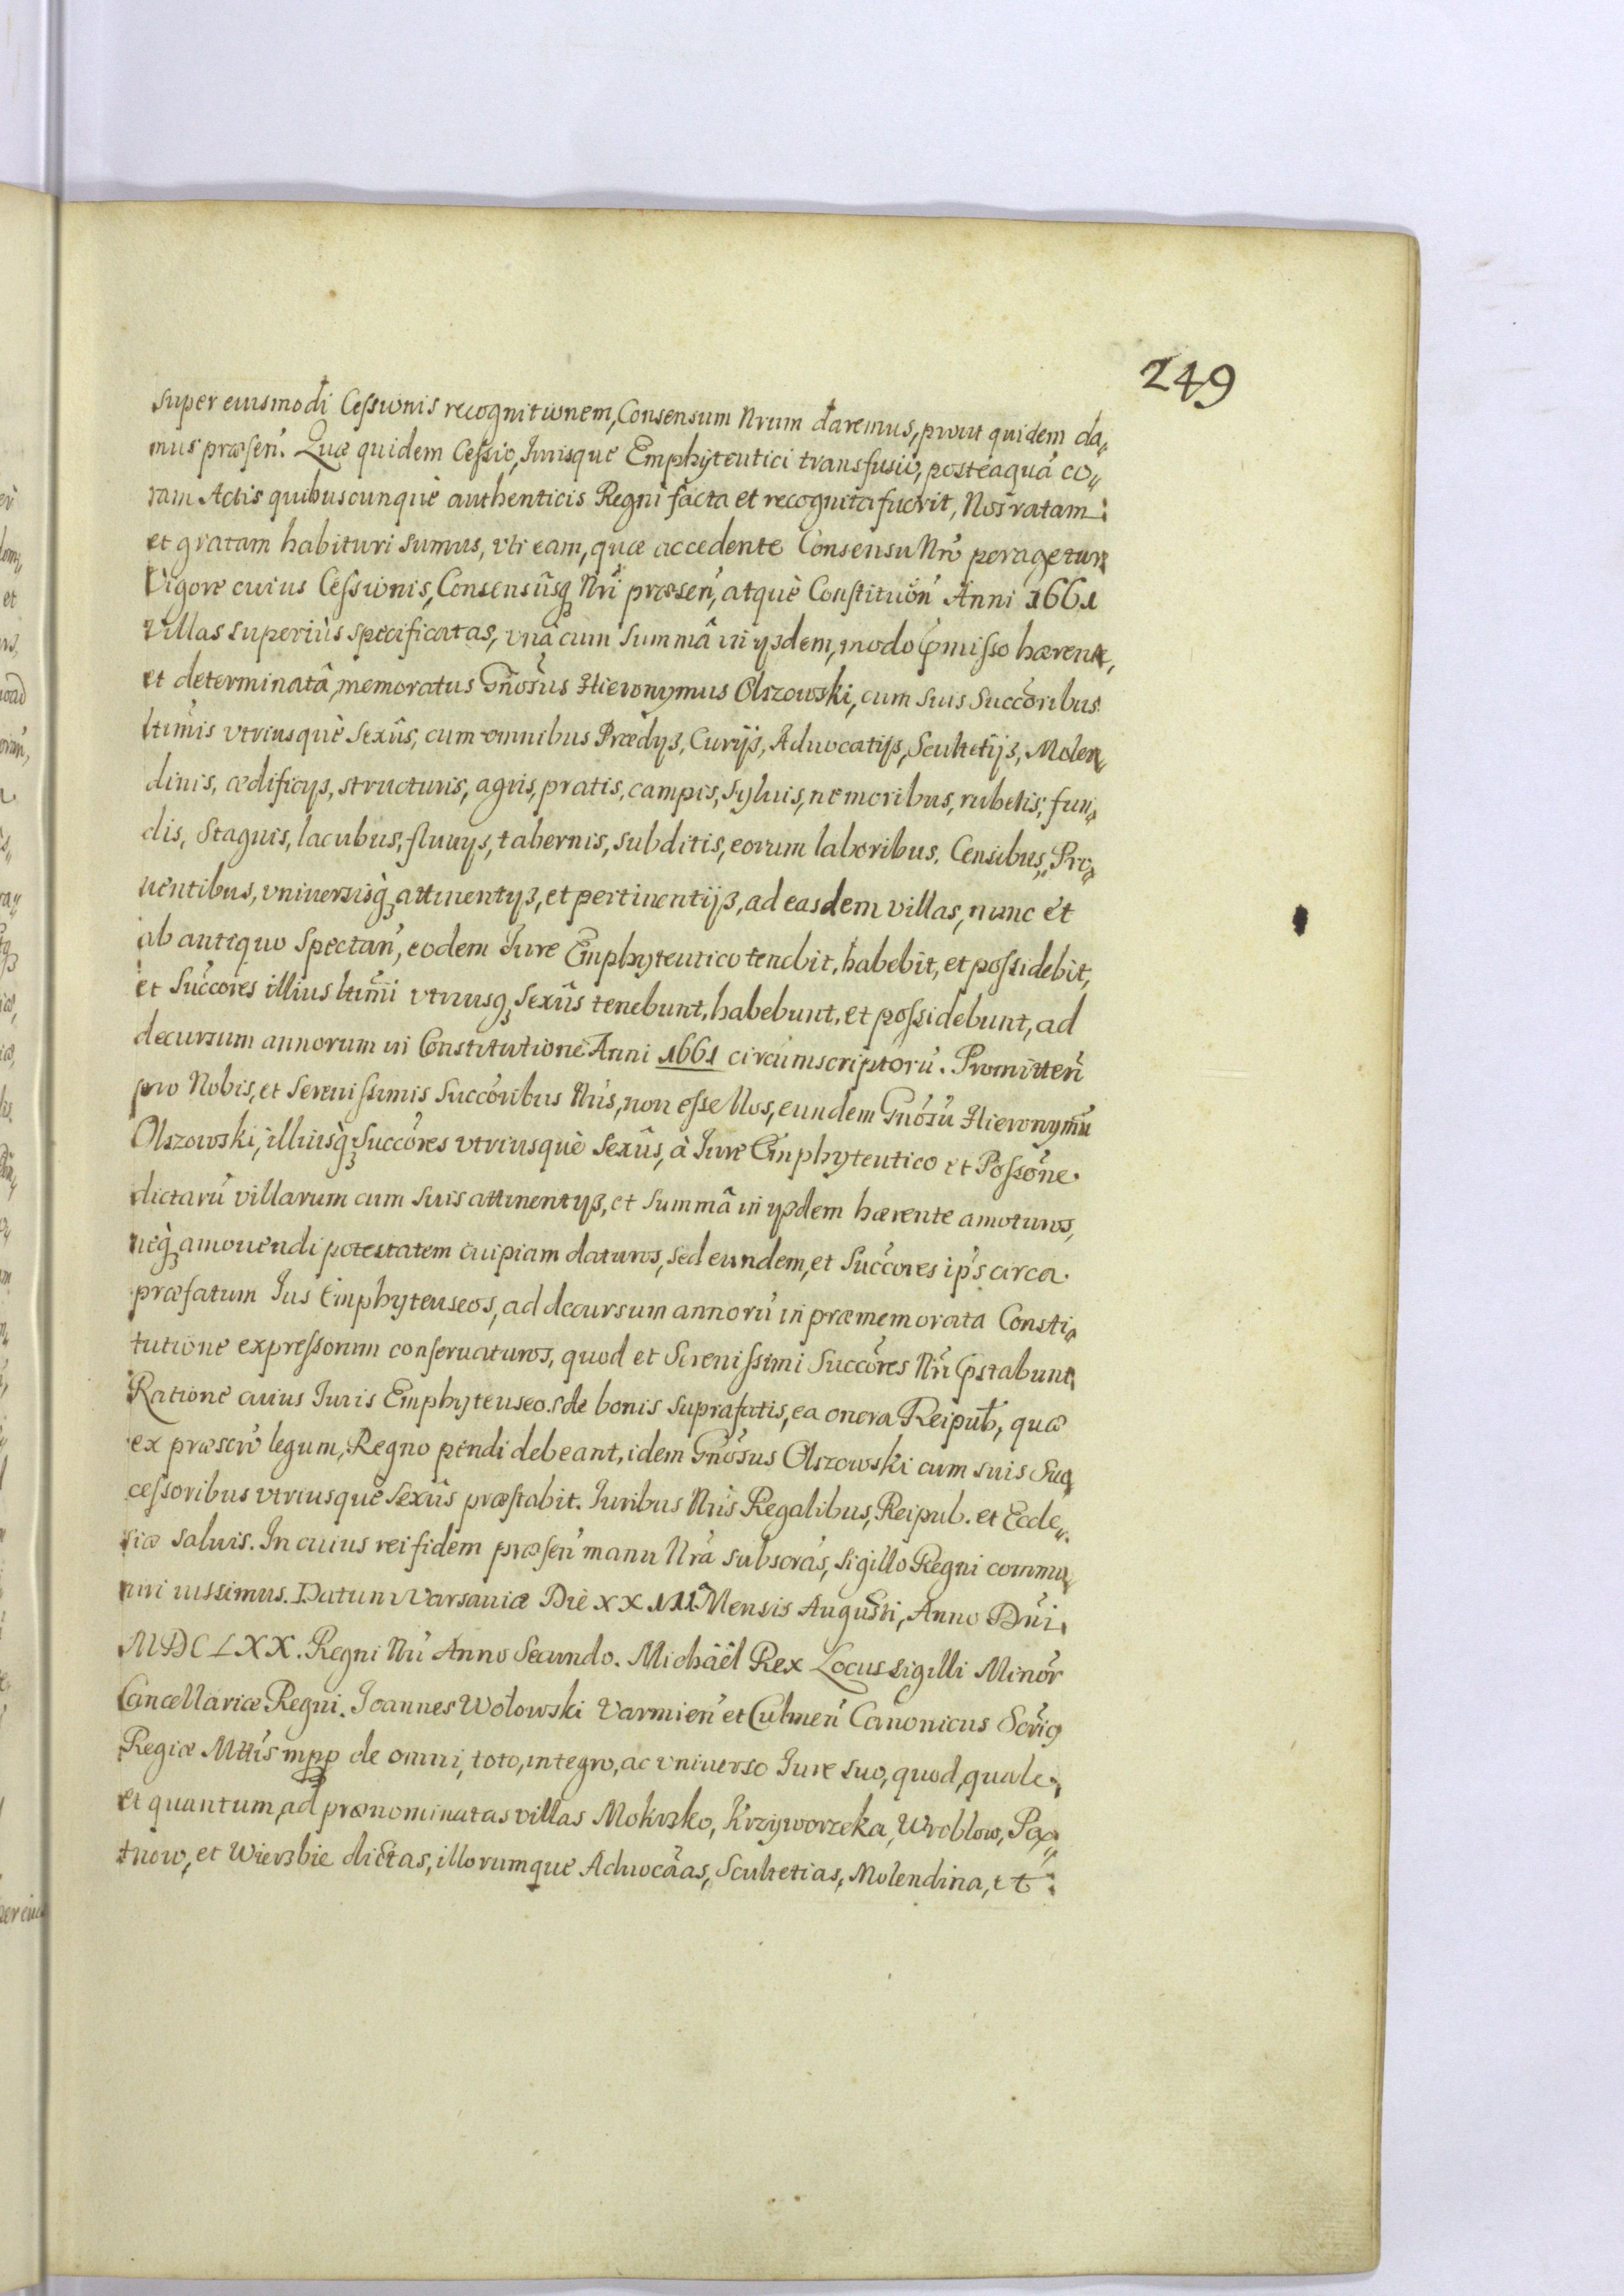 249
super eiusmodi Cessionis recognitionem, Consensum Nrum daremus, prout quidem da„
mus præsen̄. Quæ quidem Cessio, Jurisque Emphyteutici transfusio, posteaquā co„
ram Actis quibuscunquè authenticis Regni facta et recognita fuerit, Nos ratam
et gratam habituri sumus, vti eam, quæ accedente Consensu Nrō peragetur,
Vigore cuius Cessionis, Consensûsq̃ Nrī præsen̄, atquè Constituōn Anni 1661
Villas superiùs specificatas, vnâ cum Summâ in ijsdem, modo p̄misso hærente,
et determinatâ, memoratus Gn̄osus Hieronymus Olszowski, cum suis Succōribus
ltimis vtriusquè Sexûs, cum omnibus Prædijs, Curijs, Aduocatijs, Scultetijs, Molen„
dinis, ædificijs, structuris, agris, pratis, campis, syluis, nemoribus, rubetis, fun„
dis, Stagnis, lacubus, fluuijs, tabernis, subditis, eorum laboribus, Censibus, Pro„
uentibus, vniuersisq̃ attinentijs, et pertinentijs, ad easdem villas, nunc et
ab antiquo Spectan̄, eodem Jure Emphyteutico tenebit, habebit, et possidebit,
et Succōres illius ltimi vtriusq̃ Sexûs tenebunt, habebunt, et possidebunt, ad
decursum annorum in Constitutione Anni 1661 circumscriptorū. Promitten̄
pro Nobis, et Serenissimis Succōribus Nrīs, non esse Nos, eundem Gn̄osū Hieronymū
Olszowski, illiusq̃ Succōres vtriusquè Sexûs, à Jure Emphyteutico et Possōne
dictarū villarum cum suis attinentijs, et Summâ in ijsdem hærente amoturos,
neq̃ amouendi potestatem cuipiam daturos, sed eundem, et Succōres ips̄ circa
præfatum Jus Emphyteuseos, ad decursum annorū in præmemorata Consti„
tutione expressorum conseruaturos, quod et Serenissimi Succōres Nrī p̄stabunt,
Ratione cuius Juris Emphyteuseos de bonis suprafatis, ea onera Reipub̄, quæ
ex præscrō legum, Regno pendi debeant, idem Gn̄osus Olszowski cum suis Suc„
cessoribus vtriusquè Sexûs præstabit. Juribus Nrīs Regalibus, Reipub. et Eccle„
siæ saluis. In cuius rei fidem præsen̄ manu Nrā subscrās, sigillo Regni commu„
niri iussimus. Datum Varsauiæ Diè XXIII Mensis Augusti, Anno Dn̄i
MDCLXX. Regni Nrī Anno Secundo. Michäel Rex Locus Sigilli Minōr
Cancellariæ Regni. Joannes Wołowski Varmien̄ et Culmen̄ Canonicus Scrīg
Regiæ Mttis mpp de omni, toto, integro, ac vniuerso Jure suo, quod, quale,
et quantum, ad prænominatas villas Mokrsko, Krzyworzeka, Wroblow, Pą„
tnow, et Wierzbie dictas, illorumque Aduocāas, Scultetias, Molendina, et